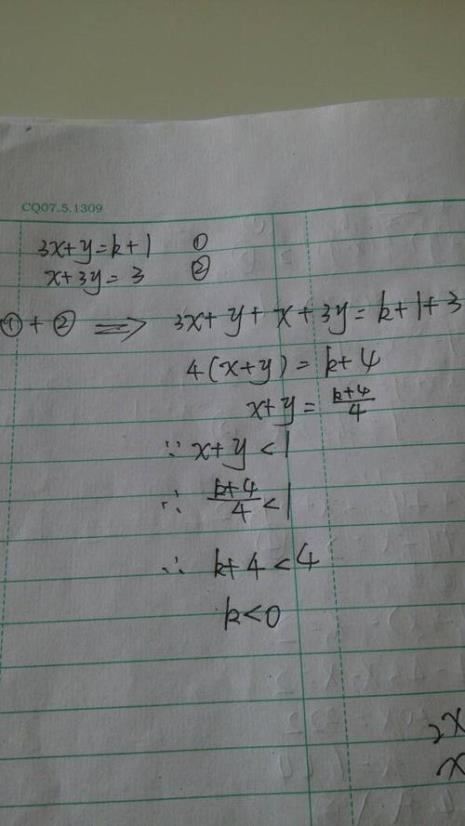 CQ07.5.1309
3x+y=k+1 ①
x+3y=3 ②
①+② ⟹ 3x+y+x+3y=k+1+3
4(x+y)=k+4
x+y=\frac{k+4}{4}
∵ x+y<1
∴ \frac{k+4}{4}<1
∴ k+4<4
k<0
2x
x